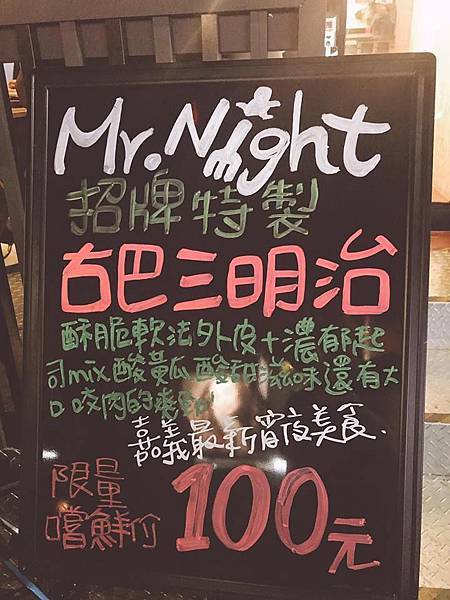 Mr. Night
招牌特製
古巴三明治
酥脆軟法外皮+濃郁起
司mix酸黃瓜酸甜滋味還有大
口咬肉的
嘉義最新宵夜美食.
限量
嚐鮮价
100元